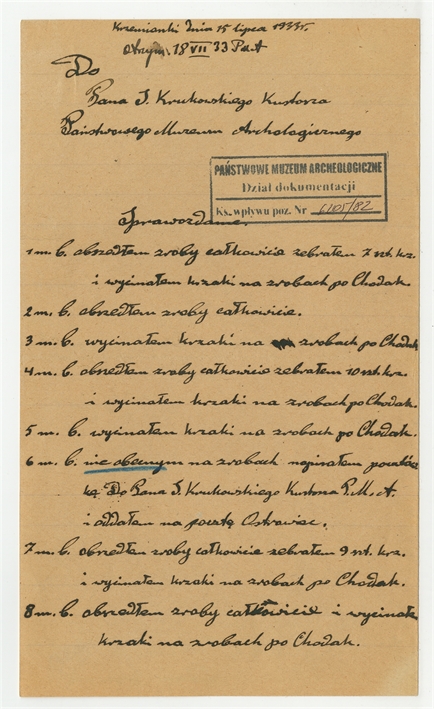 Krzemionki dnia 15 lipca 1933r.
otrzym. 18 VII 33 PaA
Do
Pana S. Krukowskiego Kustosza
Państwowego Muzeum Archologicznego
PAŃSTWOWE MUZEUM ARCHEOLOGICZNE
Dział dokumentacji
Ks. wpływu poz. Nr 6205/82
Sprawozdanie.
1 m. b. obszedłem zroby całkowicie zebrałem 7 szt. krz.
i wycinałem krzaki na zrobach po Chodak.
2 m. b. obszedłem zroby całkowicie.
3 m. b. wycinałem krzaki na zrobach po Chodak
4 m. b. obszedłem zroby całkowicie zebrałem 10 szt. krz.
i wycinałem krzaki na zrobach po Chodak.
5 m. b. wycinałem krzaki na zrobach po Chodak.
6 m. b. nie obecnym na zrobach napisałem
Do Pana S. Krukowskiego Kustosza P. M. A
i oddałem na pocztę Ostrowiec.
7 m. b. obszedłem zroby całkowicie zebrałem 9 szt. krz.
i wycinałem krzaki na zrobach po Chodak.
8 m. b. obszedłem zroby całkowicie i wycinałem
krzaki na zrobach po Chodak.